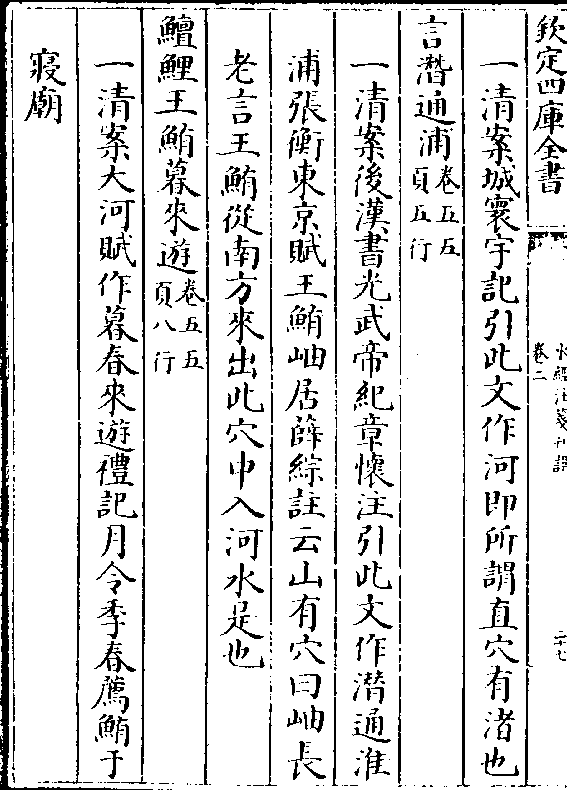 欽定四庫全書
水經注箋刊誤
卷二
二十七
一清案城寰宇記引此文作河即所謂直穴有渚也
言潛通浦卷五五頁五行
一清案後漢書光武帝紀章懷注引此文作潛通淮
浦張衡東京賦王鮪岫居薛綜註云山有穴曰岫長
老言王鮪從南方來出此穴中入河水是也
鱣鯉王鮪暮來遊卷五五頁八行
一清案大河賦作暮春來遊禮記月令季春薦鮪于
寢廟